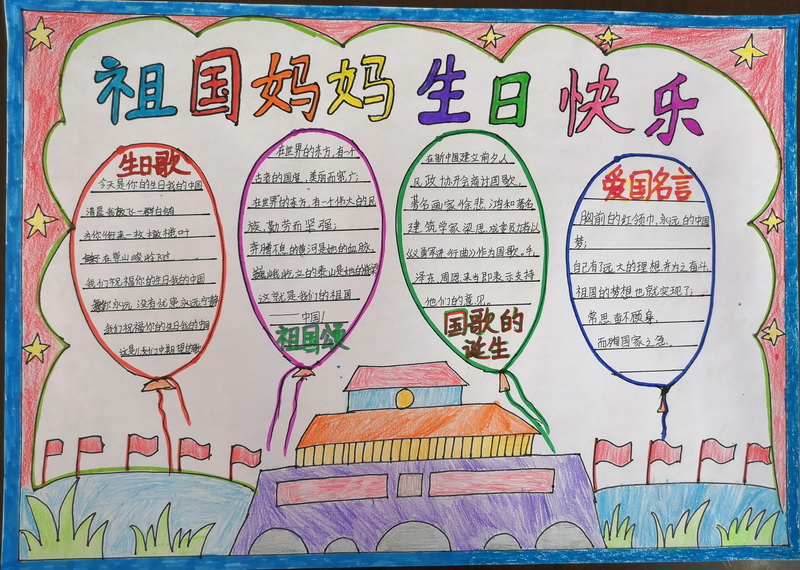 祖国妈妈生日快乐
生日歌
今天是你的生日我的中国
清晨我放飞一群白鸽
为你衔来一枚橄榄叶
在崇山峻岭飞过
我们祝福你的生日我的中国
愿你永远没有忧患永远宁静
我们祝福你的生日我的中国
这是儿女们中期望的歌
在世界的东方,有一个
古老的国度,美丽而宽广;
在世界的东方,有一个伟大的民
族,勤劳而坚强;
奔腾不息的黄河是她的血脉,
巍峨屹立的泰山是她的脊梁
这就是我们的祖国
——中国!
祖国颂
在新中国建立前夕人
民政协开会商讨国歌,
著名画家徐悲鸿和著名
建筑学家梁思成等
《义勇军进行曲》作为国歌,毛
泽东周恩来当即表示支持
他们的意见。
国歌的
诞生
爱国名言
胸前的红领巾,永远的中国
梦;
自己有了远大的理想并为之奋斗,
祖国的梦想也就实现了;
常思奋不顾身,
而殉国家之急。